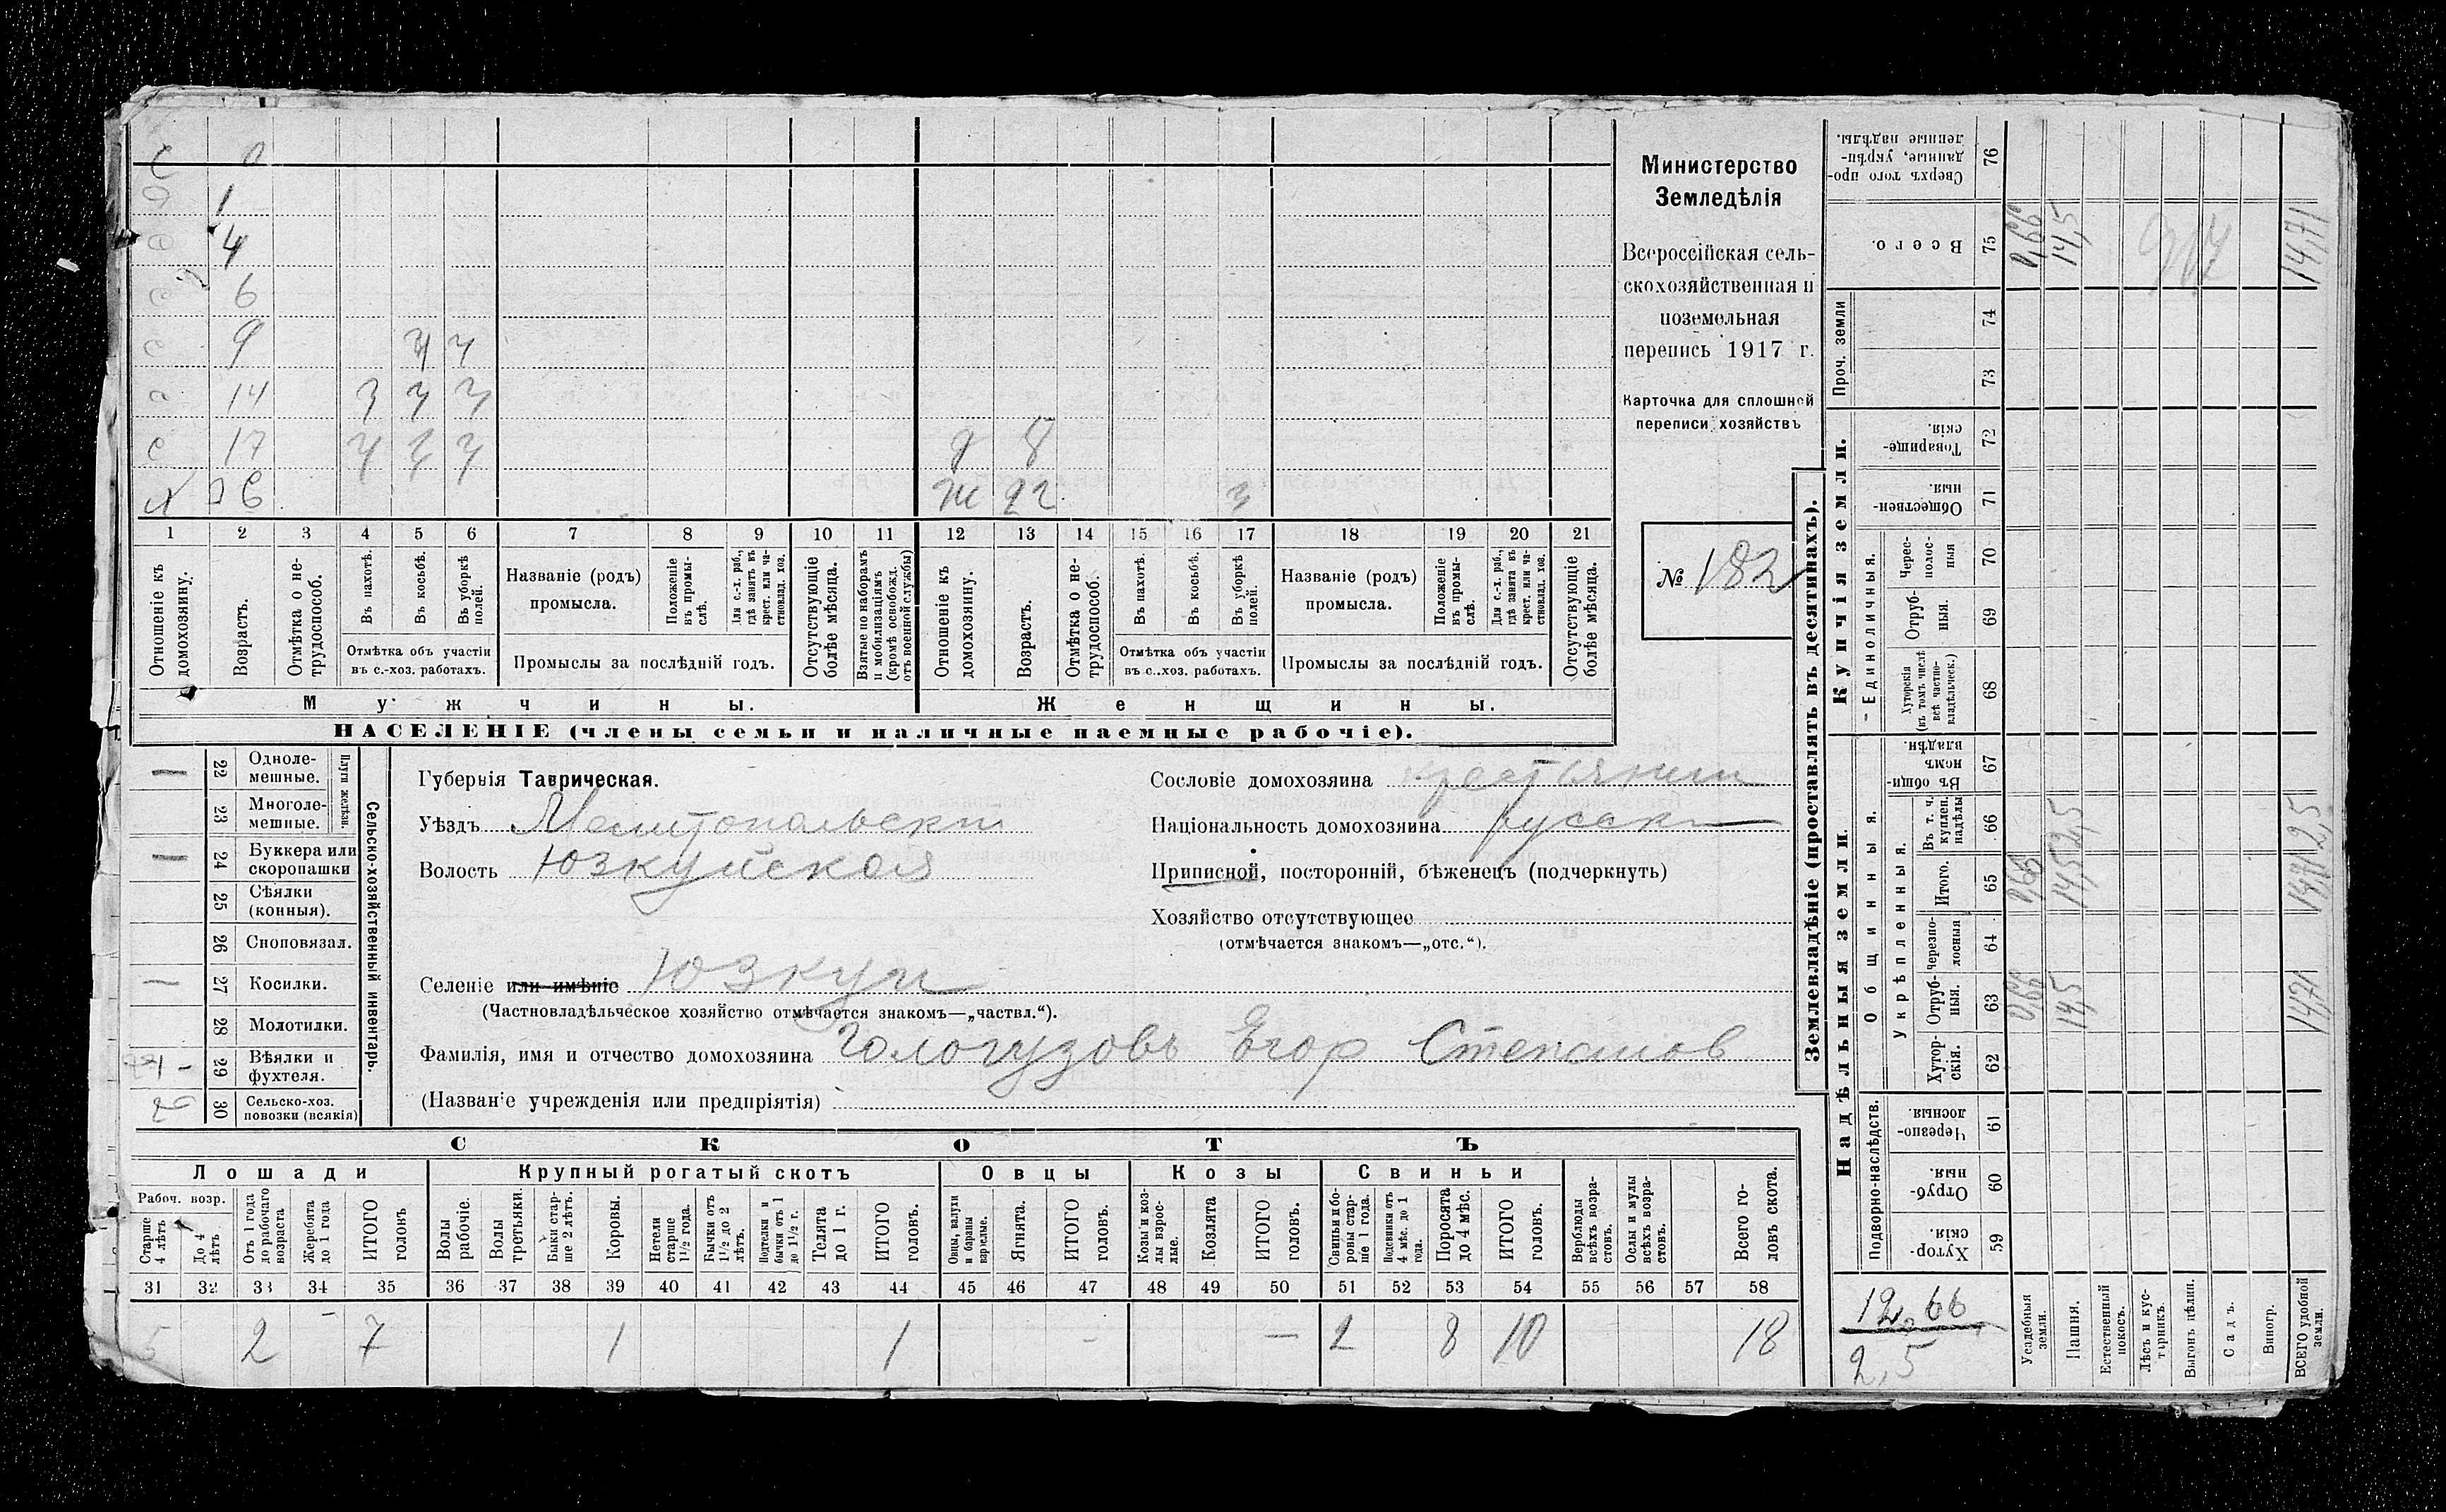 с 0
1
4
6
9 з з
с 14 з з з
с 17 з з з д 8
х 36 ж 32 з
1 2 3 4 5 6 7 8 9 10 11 12 13 14 15 16 17 18 19 20 21
Отношеніе къ домохозяину.
Возрастъ.
Отмѣтка о не-трудоспособ.
Въ пахотѣ.
Въ косьбѣ.
Въ уборкѣ полей.
Отмѣтка объ участіи
въ с.-хоз. работахъ.
Названіе (родъ)
промысла.
Положеніе въ промы-слѣ.
Для с.-х. раб., гдѣ занятъ въ крест. или ча-стновлад. хоз.
Промыслы за послѣдній годъ.
Отсутствующіе болѣе мѣсяца.
Взятые по наборамъ и мобилизаціямъ (кромѣ освобожд. отъ военной службы)
Отношеніе къ домохозяину.
Возрастъ.
Отмѣтка о не-трудоспособ.
Въ пахотѣ.
Въ косьбѣ.
Въ уборкѣ полей.
Отмѣтка объ участіи
въ с..хоз. работахъ.
Названіе (родъ)
промысла.
Положеніе въ промы-слѣ.
Для с.-х. раб., гдѣ занята въ крест. или ча-стновлад. хоз.
Промыслы за послѣдній годъ.
Отсутствующіе болѣе мѣсяца.
Мужчины. Женщины.
НАСЕЛЕНІЕ (члены семьи и наличные наемные рабочіе).
Министерство
Земледѣлія
Всероссійская сель-
скохозяйственная и
поземельная
перепись 1917 г.
Карточка для сплошной
переписи хозяйствъ
№ 182
Сельско-хозяйственный инвентарь.
Плуги желѣзн.
— 22 Одноле-мешные.
23 Многоле-мешные.
— 24 Буккера или скоропашки
25 Сѣялки (конныя).
26 Сноповязал.
— 27 Косилки.
28 Молотилки.
1 - 29 Вѣялки и фухтеля.
2 30 Сельско-хоз. повозки (всякія)
Губернія Таврическая.
Уѣздъ Мелитопольскій
Волость Юзкуйская
Селеніе или имѣніе Юзкуи
(Частновладѣльческое хозяйство отмѣчается знакомъ—„частвл.“).
Фамилія, имя и отчество домохозяина Гологузовъ Егор Степанов
(Названіе учрежденія или предпріятія)
Сословіе домохозяина крестьянин
Національность домохозяина русскі
Приписной, посторонній, бѣженецъ (подчеркнуть)
Хозяйство отсутствующее
(отмѣчается знакомъ—„отс.“).
СКОТЪ
Лошади Крупный рогатый скотъ Овцы Козы Свиньи
Рабоч. возр.
Старше 4 лѣтъ
До 4 лѣтъ
Отъ 1 года до рабочаго возраста
Жеребята до 1 года
ИТОГО головъ
Волы рабочіе.
Волы третьяки.
Быки стар-ше 2 лѣтъ.
Коровы.
Нетели старше 1½ года.
Бычки отъ 1½ до 2 лѣтъ.
Подтелки и бычки отъ 1 до 1½ г.
Телята до 1 г.
ИТОГО головъ.
Овцы, валухи и бараны взрослые.
Ягнята.
ИТОГО головъ.
Козы и коз-лы взрос-лые.
Козлята
ИТОГО головъ.
Свиньи и бо-ровы стар-ше 1 года.
Подсвинки отъ 4 мѣс. до 1 года.
Поросята до 4 мѣс.
ИТОГО головъ.
Верблюды всѣхъ возра-стовъ.
Ослы и мулы всѣхъ возра-стовъ.
Всего го-ловъ скота.
31 32 33 34 35 36 37 38 39 40 41 42 43 44 45 46 47 48 49 50 51 52 53 54 55 56 57 58
5 2 - 7 1 1 - — 2 8 10 18
Землевладѣніе (проставлять въ десятинахъ).
Надѣльныя земли. Купчія земли. Проч. земли
Подворно-наслѣдств.
Общинныя.
Укрѣпленныя.
Единоличныя.
Хутор-скія. 59
Отруб-ныя. 60
Черезпо-лосныя 61
Хутор-скія. 62
Отруб-ныя. 63
Черезпо-лосныя 64
Итого. 65
Въ т. ч. куплен. надѣлы 66
Въ общи-номъ владѣн. 67
Хуторскія (въ томъ числѣ всѣ частно-владѣльческ.) 68
Отруб-ныя. 69
Черес-полос-ныя 70
Обществен-ныя. 71
Товарище-скія. 72
73
74
Всего. 75
Сверхъ того про-данные, укрѣп-ленные надѣлы. 76
12,66
2,5
Усадебныя земли. 0,66 0,66 0,66
Пашня. 14,5 14,5 2,5 14,5
Естественный покосъ.
Лѣсъ и кус-тарникъ.
Выгонъ цѣлин.
Садъ.
Виногр.
ВСЕГО удобной земли. 14,71 14,71 2,5 14,71